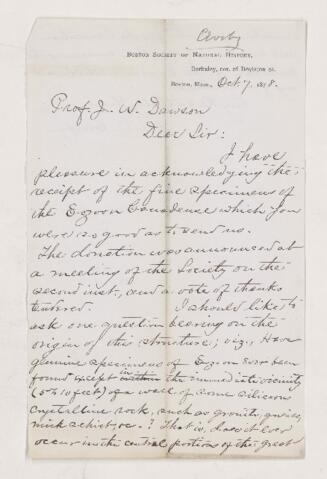 Crosby
BOSTON SOCIETY OF NATURAL HISTORY,
Berkeley, cor. of Boylston St.
Boston, Mass., Oct 7, 1878.
Prof. J. W. Dawson
Dear Sir:
I have
pleasure in acknowledging the
receipt of the fine specimens of
the Eozoon Canadense which you
were so good as to send us.
The donation was announced at
a meeting of the Society on the
second inst., and a vote of thanks
tendered. I should like to
ask one question bearing on the
origin of this structure; viz., Have
genuine specimens of Eozoon ever been
found except within the immediate vicinity
(5 to 10 feet) of a wall of some silicious
crystalline rock, such as granite, gneiss,
mica schist, &c.? That is, does it ever
occur in the central portions of the great